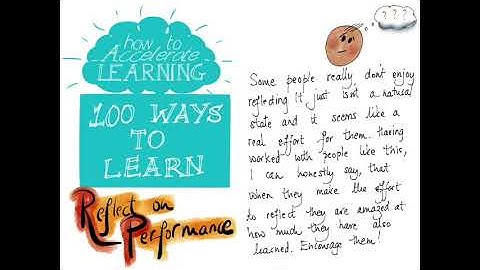 how to
Accelerate
LEARNING
100 WAYS
TO
LEARN
Reflect on
Performance
? ? ?
Some people really don't enjoy
reflecting it just isnt a natural
state and it seems like a
real effort for them. Having
worked with people like this,
I can honestly say, that
when they make the effort
to reflect they are amazed at
how much they have also
learned! Encourage them!